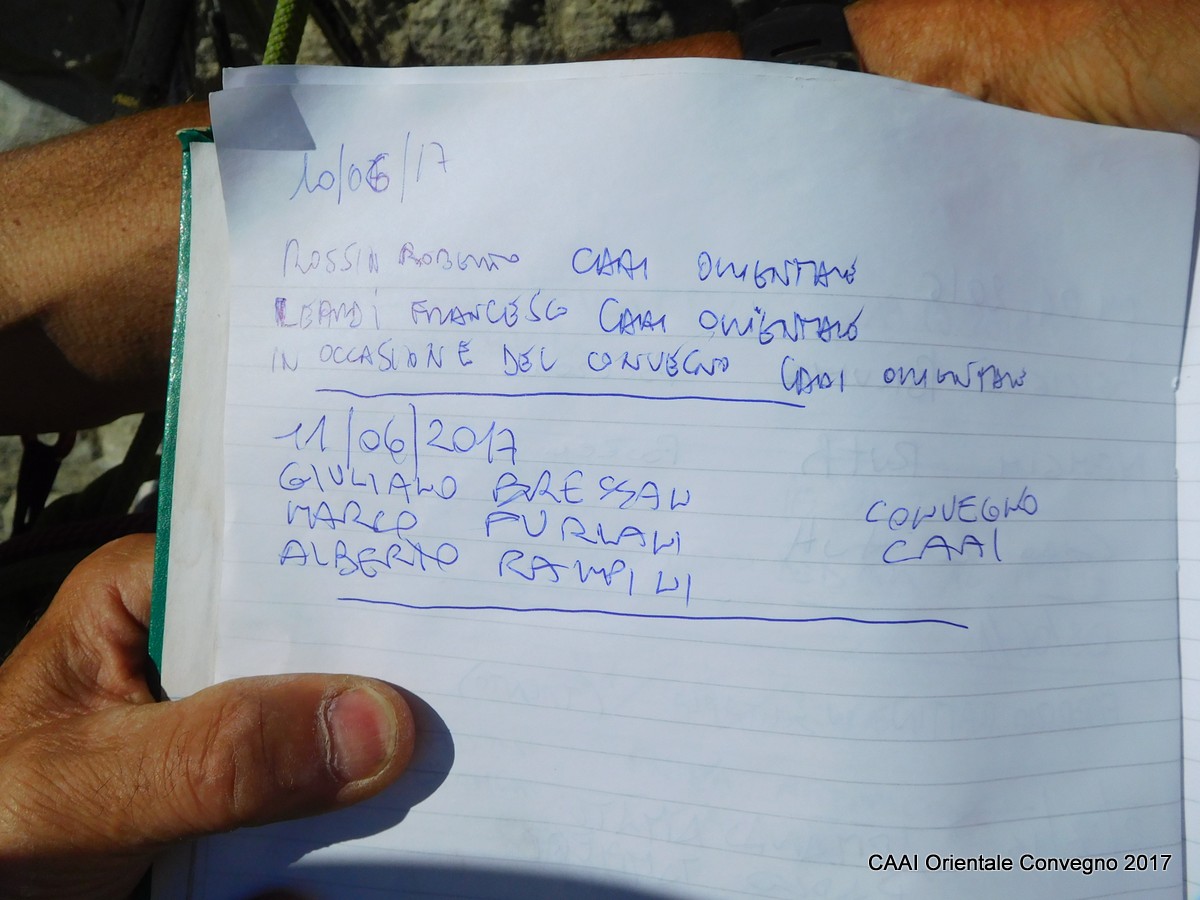 10/06/17
ROSSIN ROBERTO CAAI ORIENTALE
LEARDI FRANCESCO CAAI ORIENTALE
IN OCCASIONE DEL CONVEGNO CAAI ORIENTALE
11/06/2017
GIULIANO BRESSAN
MARCO FURLANI
ALBERTO RAMPINI
CONVEGNO
CAAI
CAAI Orientale Convegno 2017